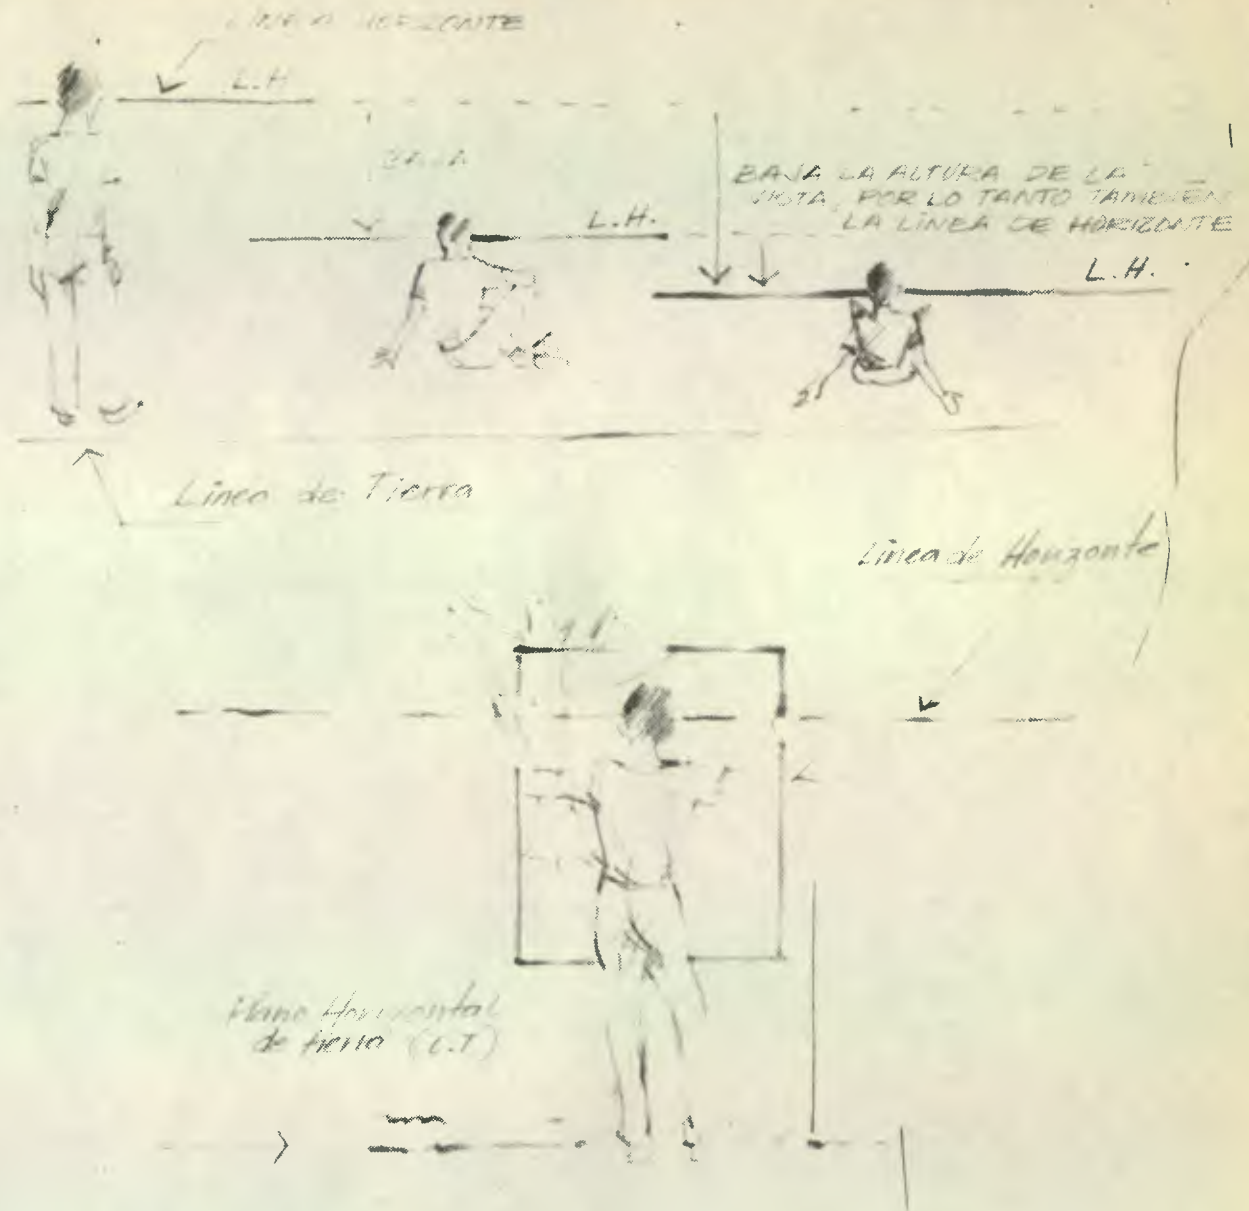 LINEA HORIZONTE
L.H
BAJA
L.H.
BAJA LA ALTURA DE LA
VISTA, POR LO TANTO TAMBIÉN
LA LÍNEA DE HORIZONTE
L.H.
Línea de Tierra
Línea de Horizonte
Plano Horizontal
de tierra (L.T)